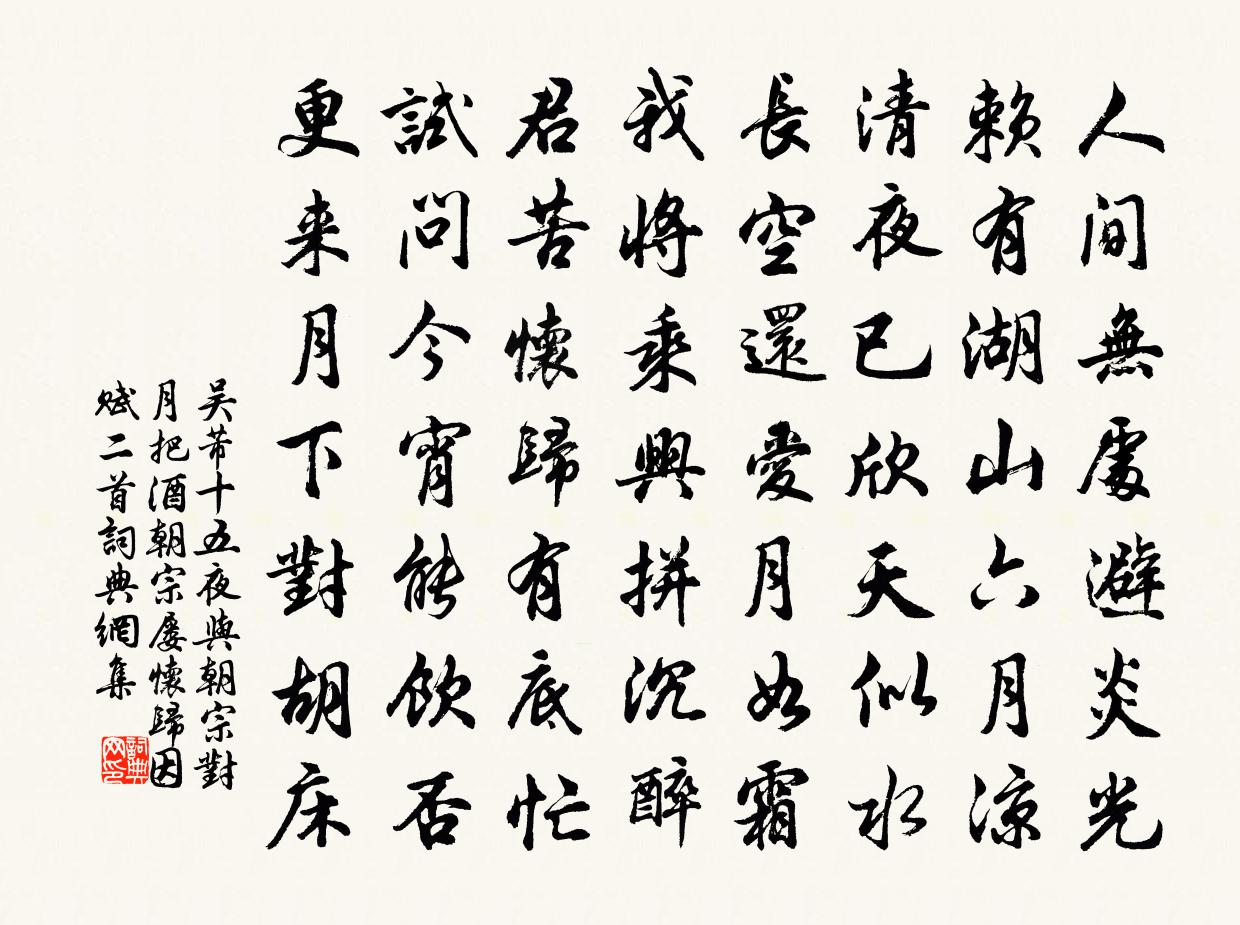 人间無處避炎光
賴有湖山六月涼
清夜已欣天似水
長空還愛月如霜
我將乘興拼沉醉
君苦懷歸有底忙
試問今宵能飲否
更来月下對胡床
吴芾十五夜與朝宗對
月把酒朝宗屡懷歸因
赋二首詞典網集
詞典
网印